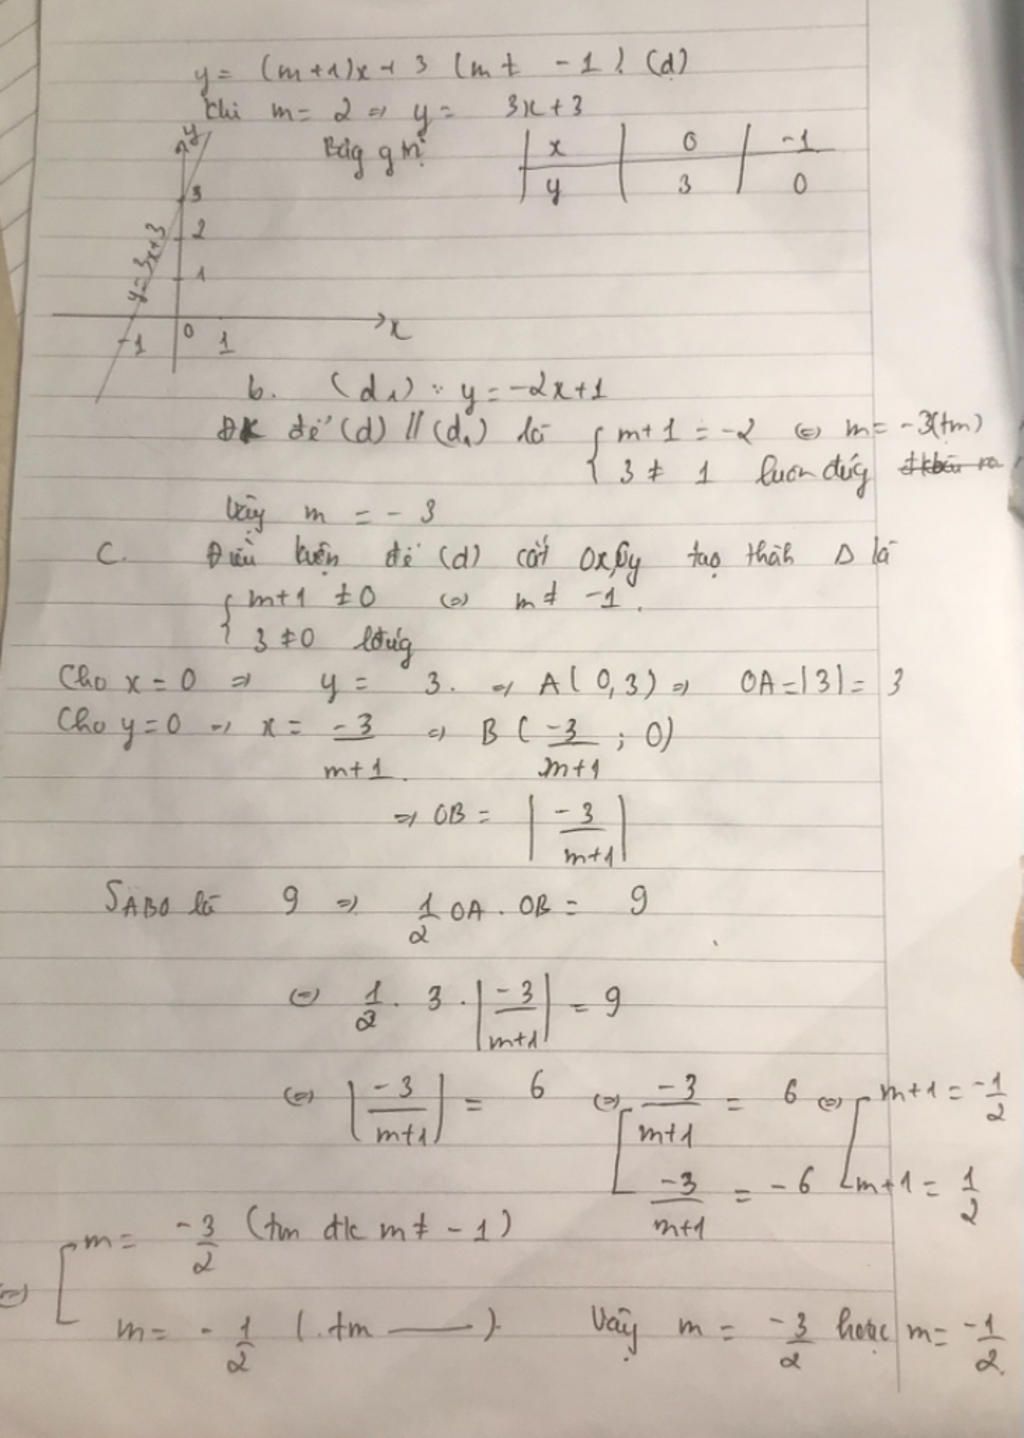 y = (m+1)x+3 (m ≠ -1) (d)
Khi m = 2 => y = 3x+3
Bảg g trị
x 0 -1
y 3 0
y
3
2
1
y = 3x+3
-1 0 1 x
b. (d₁): y = -2x+1
ĐK để (d) // (d₁) là { m+1 = -2 <=> m = -3(tm)
3 ≠ 1 luôn đúg
Vậy m = -3
C. Điều kiện để (d) cắt Ox, Oy tạo thàh Δ là
{ m+1 ≠ 0 <=> m ≠ -1.
3 ≠ 0 lđúg
Cho x = 0 => y = 3. => A(0,3) => OA = |3| = 3
Cho y = 0 => x = -3/m+1. => B(-3/m+1; 0)
=> OB = |-3/m+1|
SABO là 9 => 1/2 OA . OB = 9
<=> 1/2 . 3 . |-3/m+1| = 9
<=> |-3/m+1| = 6 <=> [ -3/m+1 = 6 <=> [ m+1 = -1/2
-3/m+1 = -6 m+1 = 1/2
<=> [ m = -3/2 (tm đk m ≠ -1)
m = -1/2 (.tm ——). Vậy m = -3/2 hoặc m = -1/2.